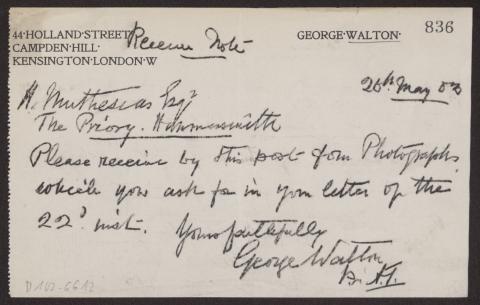 44·HOLLAND·STREET
CAMPDEN·HILL·
KENSINGTON·LONDON·W
Receive Note
GEORGE·WALTON·
836
26th May 03
H. Muthesius Esqr
The Priory. Hammersmith
Please receive by this post four Photographs
which you ask for in your letter of the
22d inst. Yours faithfully
George Walton
D 102-6612